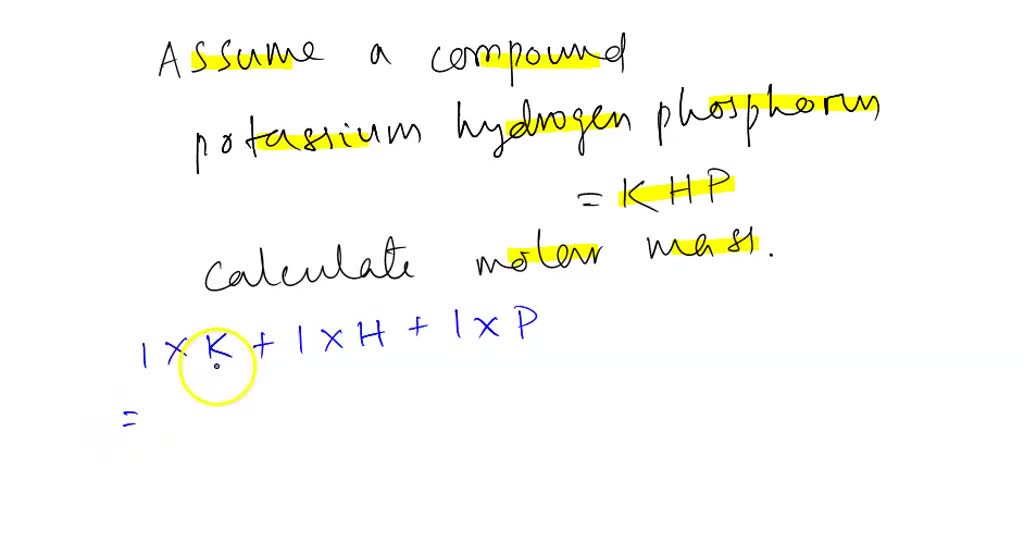 Assume a compound
potassium hydrogen phosphorus
= KHP
calculate molar mass.
1 × K + 1 × H + 1 × P
=